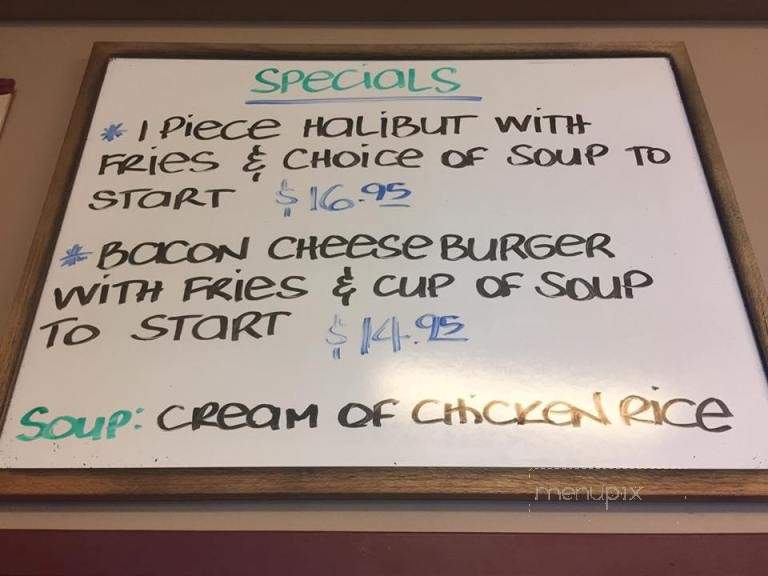 SPECIALS
* 1 PIECE HALIBUT WITH
FRIES & CHOICE OF SOUP TO
START $16.95
* BACON CHEESE BURGER
WITH FRIES & CUP OF SOUP
TO START $14.95
SOUP: CREAM OF CHICKEN RICE
menupix